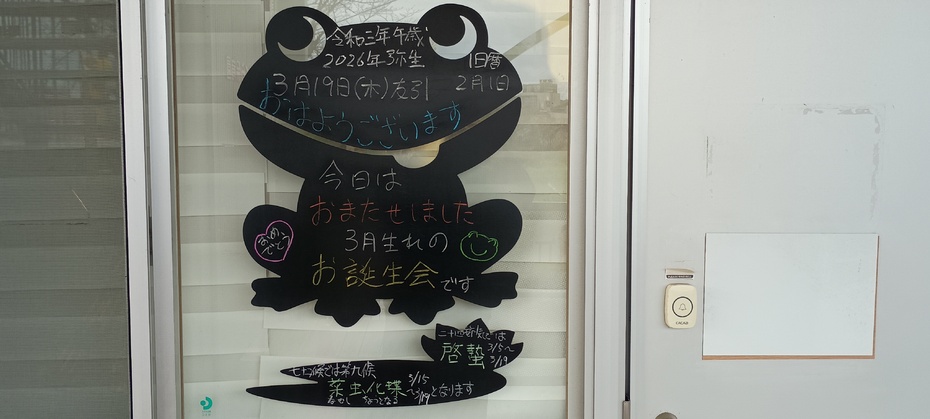 令和三年午歳
2026年弥生
旧暦
3月19日(木)友引
2月1日
おはようございます
今日は
おまたせしました
3月生れの
お誕生会です
おめでとう
二十四節気では
啓蟄
3/5〜3/19
七十二候では第九候
菜虫化蝶
なむし
ちょうとなる
3/15〜3/19となります